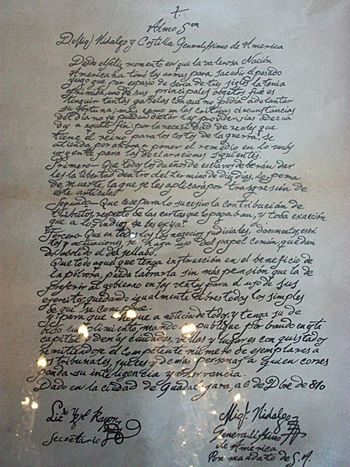 Almo Sor
D. Migl Hidalgo y Costilla Generalísimo de America
Desde el feliz momento en que la valerosa Nación
Americana tomó las armas para sacudir el pesado
yugo que por espacio de cerca de tres siglos la tenía
oprimida, uno de sus principales objetos fué es
tinguir tantas gavelas con que no podía adelantar
su fortuna; mas como en las críticas circunstancias
del día no se puedan dictar las providencias adecua
das a aquel fin, por la necesidad de reales que
tiene el reino para los costos de la guerra, se
atienda por ahora a poner el remedio en lo más
urgente por las declaraciones siguientes.
Primero- Que todos los dueños de esclavos deberán dar
les la libertad dentro del termino de diez días, so pena
de muerte, la que se les aplicara por trasgresión de
este artículo.
Segundo- Que cese para lo sucesivo la contribución de
tributos, respecto de las castas que lo pagaban, y toda exacción
que a los indios se les exija.
Tercero. Que en todos los negocios judiciales, documentos, escri
tos y actuaciones, se haga uso del papel común quedan
do abolido el del sellado.
Que todo aquel que tenga instrucción en el beneficio de
la pólvora, pueda labrarla, sin más pensión que la de
preferir al gobierno en las ventas para el uso de sus
ejércitos, quedando igualmente libres todos los simples
de que se compone.
Y para que llegue a noticia de todos y tenga su de
bido cumplimiento, mando se publique por bando en esta
capital y demás ciudades, villas y lugares conquistados
remitiendose el competente número de ejemplares a
los tribunales, jueces y demás personas a quienes corres
ponda su inteligencia y observancia.
Dado en la ciudad de Guadalajara, a 6 de Dbre de 810
Migl Hidalgo
Generalísimo
de America
Licdo Igl Rayon
Secretario
Por mandato de S.A.